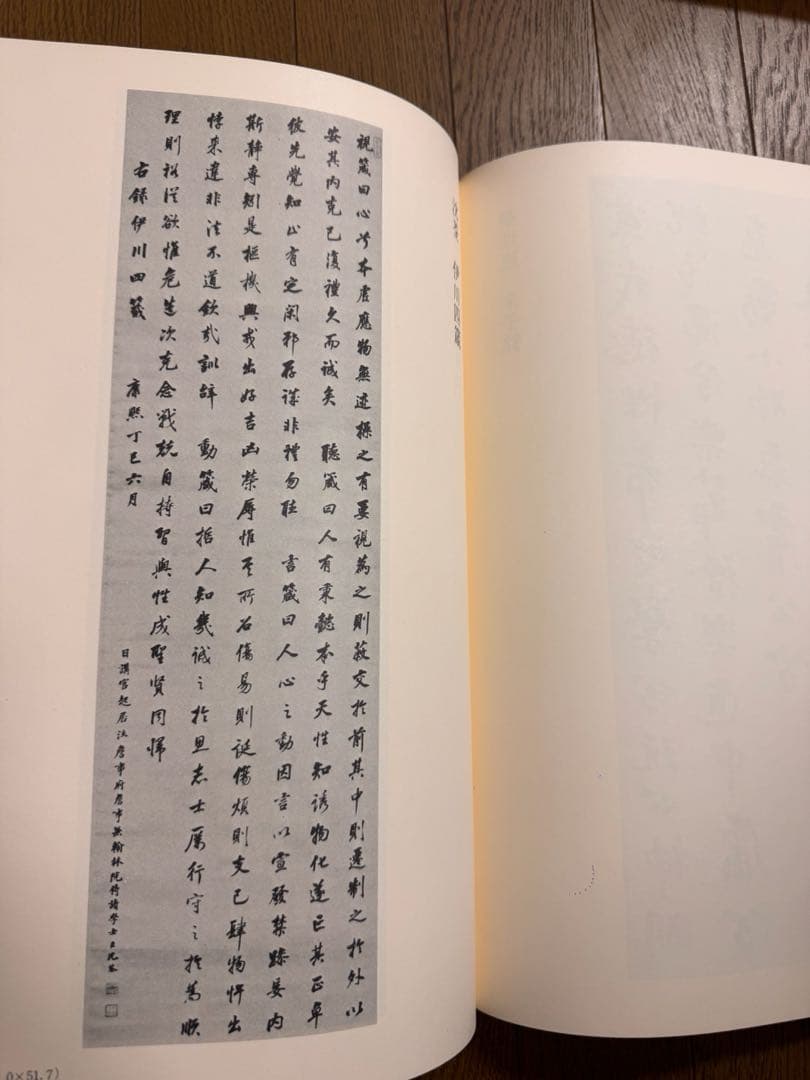 沈荃 伊川四箴
視箴曰心兮本虛應物無迹操之有要視為之則蔽交於前其中則遷制之於外以
安其內克己復禮久而誠矣 聽箴曰人有秉懿本乎天性知誘物化遂亡其正卓
彼先覺知止有定閑邪存誠非禮勿聽 言箴曰人心之動因言以宣發禁躁妄內
斯靜專矧是樞機興戎出好吉凶榮辱惟其所召傷易則誕傷煩則支己肆物忤出
悖來違非法不道欽哉訓辭 動箴曰哲人知幾誠之於思志士厲行守之於為順
理則裕從欲惟危造次克念戰兢自持習與性成聖賢同歸
右錄伊川四箴 康熙丁巳六月
日講官起居注詹事府詹事兼翰林院侍讀學士臣沈荃
0×51.7)